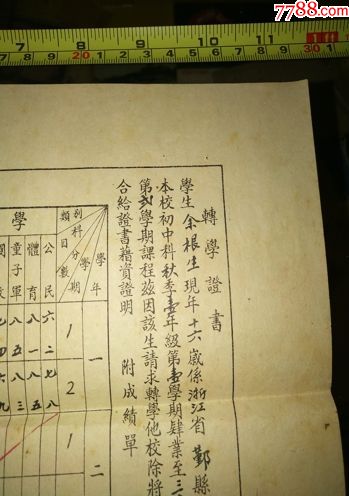 7788.com
轉學證書
學生余根生現年十六歲係浙江省鄞縣
本校初中科秋季壹年級第壹學期肄業至
第 學期課程茲因該生請求轉學他校除將
合給證書藉資證明 附成績單
學年
學期
分數
科目
類別
一
二
1
2
1
學
公民 六二 七八
體育 八一 八五
童子軍 八五 八三
7 8 9 10 11 1ft
20 30